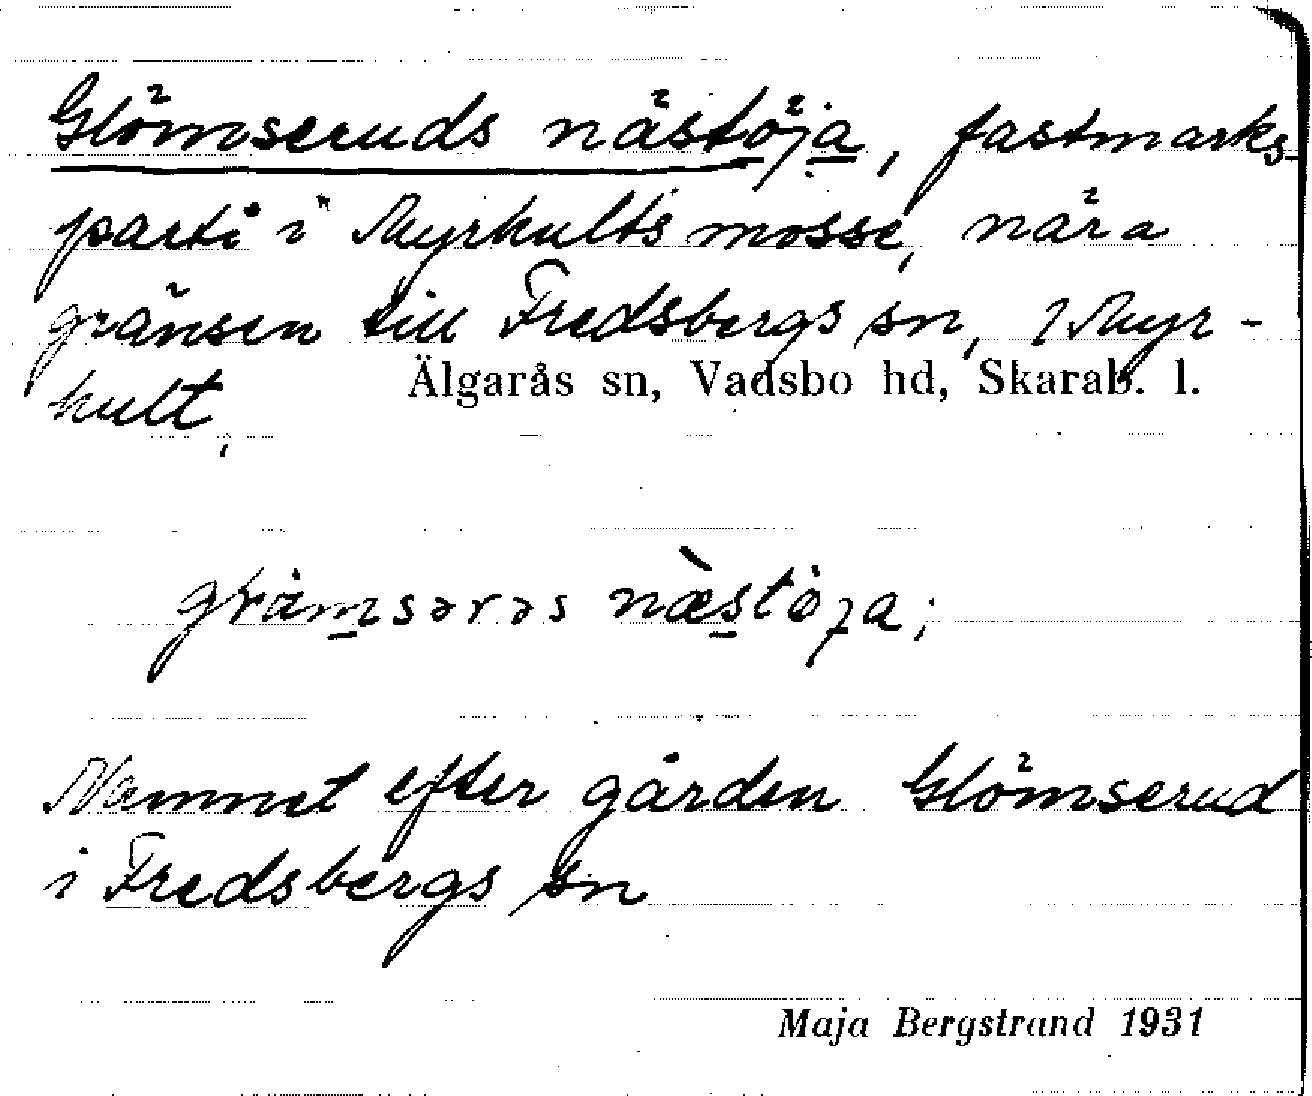 Glömseruds nästöja, fastmarks-
parti i Myrhults mosse, nära
gränsen till Fredsbergs sn, Myr-
hult,
Älgarås sn, Vadsbo hd, Skarab. l.
næstöja;
Namnet efter gården Glömserud
i Fredsbergs sn
Maja Bergstrand 1931